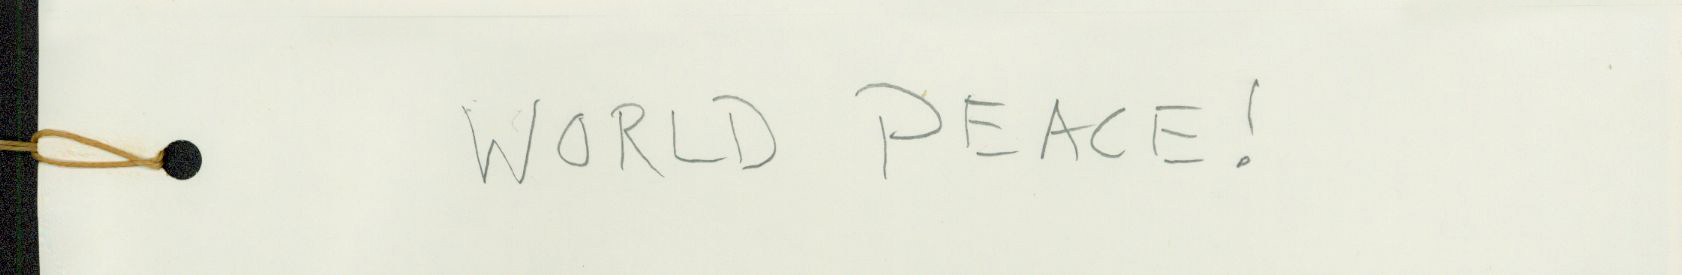 WORLD PEACE!